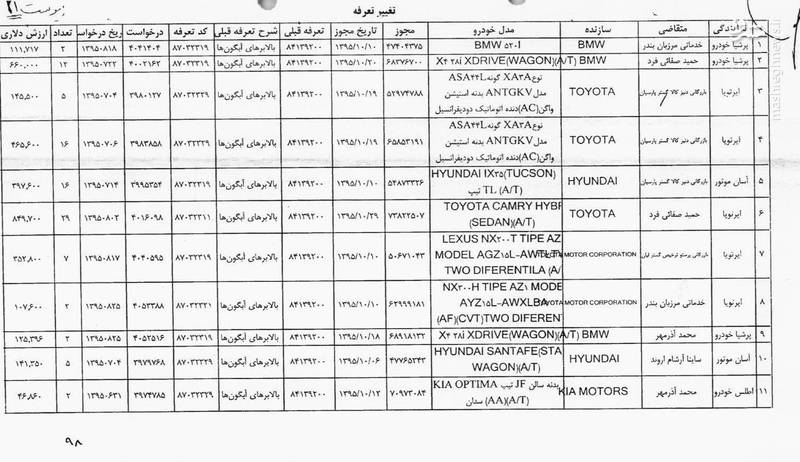 پیوست ۲۱
تغییر تعرفه
نمایندگی متقاضی سازنده مدل خودرو مجوز تاریخ مجوز تعرفه قبلی شرح تعرفه قبلی کد تعرفه درخواست تاریخ درخواست تعداد ارزش دلاری
۱ پرشیا خودرو خدماتی مرزبان بندر BMW BMW ۵۲۰I ۴۷۴۰۴۳۷۵ ۱۳۹۵/۱۰/۱۰ ۸۴۱۳۹۲۰۰ بالابرهای آبگون‌ها ۸۷۰۳۲۳۱۹ ۴۰۴۱۴۰۴ ۱۳۹۵۰۸۱۸ ۲ ۱۱۱,۷۱۷
۲ پرشیا خودرو حمید صفائی فرد X۴ ۲۸i XDRIVE(WAGON)(A/T) BMW ۶۸۳۷۶۷۰۰ ۱۳۹۵/۱۰/۲۰ ۸۴۱۳۹۲۰۰ بالابرهای آبگون‌ها ۸۷۰۳۲۳۱۹ ۴۰۰۲۱۶۲ ۱۳۹۵۰۷۲۲ ۱۲ ۶۶۰,۰۰۰
۳ ایرتویا بازرگانی دنیز کالا گستر پارسیان TOYOTA نوع XA۳۸ گونه ASA۴۴L
مدل ANTGKV بدنه استیشن
واگن(AC)دنده اتوماتیک دودیفرانسیل ۵۲۹۷۴۷۸۸ ۱۳۹۵/۱۰/۱۹ ۸۴۱۳۹۲۰۰ بالابرهای آبگون‌ها ۸۷۰۳۲۳۲۹ ۳۹۸۰۱۲۷ ۱۳۹۵۰۷۰۴ ۵ ۱۴۵,۵۰۰
۴ ایرتویا بازرگانی دنیز کالا گستر پارسیان TOYOTA نوع XA۳۸ گونه ASA۴۴L
مدل ANTGKV بدنه استیشن
واگن(AC)دنده اتوماتیک دودیفرانسیل ۶۵۸۵۳۱۹۱ ۱۳۹۵/۱۰/۱۹ ۸۴۱۳۹۲۰۰ بالابرهای آبگون‌ها ۸۷۰۳۲۳۲۹ ۳۹۸۳۸۵۸ ۱۳۹۵۰۷۰۶ ۱۶ ۴۶۵,۶۰۰
۵ آسان موتور بازرگانی دنیز کالا گستر پارسیان HYUNDAI HYUNDAI IX۳۵(TUCSON)
(A/T) TL تیپ ۵۴۸۷۳۳۲۶ ۱۳۹۵/۱۰/۱۰ ۸۴۱۳۹۲۰۰ بالابرهای آبگون‌ها ۸۷۰۳۲۳۱۹ ۳۹۹۵۳۵۴ ۱۳۹۵۰۷۱۴ ۱۶ ۳۹۷,۶۰۰
۶ ایرتویا حمید صفائی فرد TOYOTA TOYOTA CAMRY HYBF
(SEDAN)(A/T) ۷۳۸۲۲۵۰۷ ۱۳۹۵/۱۰/۲۹ ۸۴۱۳۹۲۰۰ بالابرهای آبگون‌ها ۸۷۰۳۲۳۱۱ ۴۰۱۶۰۹۸ ۱۳۹۵۰۸۰۲ ۲۹ ۸۴۹,۷۰۰
۷ ایرتویا MOTOR CORPORATION LEXUS NX۲۰۰T TIPE AZ
MODEL AGZ۱۵L-AWTLT
TWO DIFERENTILA (A/ ۵۰۶۷۱۰۴۳ ۱۳۹۵/۱۰/۱۰ ۸۴۱۳۹۲۰۰ بالابرهای آبگون‌ها ۸۷۰۳۲۳۱۹ ۴۰۴۰۵۹۵ ۱۳۹۵۰۸۱۷ ۷ ۳۵۲,۸۰۰
۸ ایرتویا خدماتی مرزبان بندر TOYOTA MOTOR CORPORATION NX۳۰۰H TIPE AZ۱ MODE
AYZ۱۵L-AWXLBA
(AF)(CVT)TWO DIFEREN ۶۲۹۹۹۱۸۱ ۱۳۹۵/۱۰/۱۰ ۸۴۱۳۹۲۰۰ بالابرهای آبگون‌ها ۸۷۰۳۲۳۲۱ ۴۰۵۳۳۸۸ ۱۳۹۵۰۸۲۵ ۲ ۱۰۷,۶۰۰
۹ پرشیا خودرو محمد آذرمهر X۴ ۲۸i XDRIVE(WAGON)(A/T) BMW ۶۸۹۱۸۱۳۲ ۱۳۹۵/۱۰/۱۸ ۸۴۱۳۹۲۰۰ بالابرهای آبگون‌ها ۸۷۰۳۲۳۱۹ ۴۰۵۲۵۱۶ ۱۳۹۵۰۸۲۵ ۲ ۱۲۵,۳۹۶
۱۰ آسان موتور ساینا آرشام اروند HYUNDAI HYUNDAI SANTAFE(STA
WAGON)(A/T) ۴۷۷۶۵۳۴۳ ۱۳۹۵/۱۰/۰۶ ۸۴۱۳۹۲۰۰ بالابرهای آبگون‌ها ۸۷۰۳۲۳۲۹ ۳۹۷۹۷۶۸ ۱۳۹۵۰۷۰۴ ۵ ۱۴۱,۳۵۰
۱۱ اطلس خودرو محمد آذرمهر KIA MOTORS KIA OPTIMA تیپ JF بدنه سالن
(AA)(A/T) سدان ۷۰۹۷۳۰۸۴ ۱۳۹۵/۱۰/۱۲ ۸۴۱۳۹۲۰۰ بالابرهای آبگون‌ها ۸۷۰۳۲۳۲۹ ۳۹۷۴۷۸۵ ۱۳۹۵۰۶۳۱ ۲ ۴۶,۸۶۰
۹۸
mashreghnews.ir